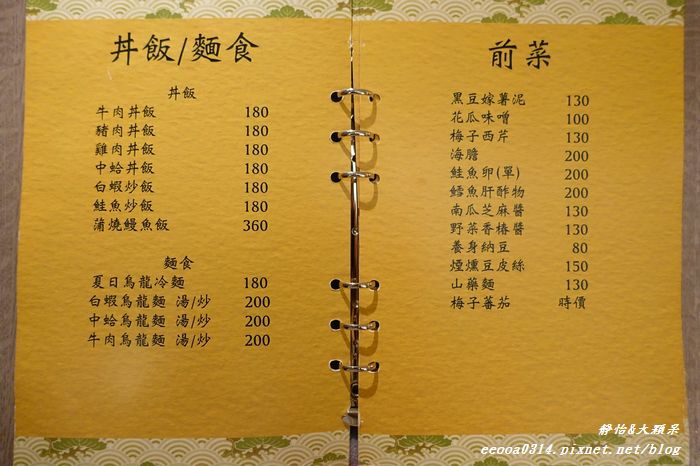 丼飯/麵食
丼飯
牛肉丼飯 180
豬肉丼飯 180
雞肉丼飯 180
中蛤丼飯 180
白蝦炒飯 180
鮭魚炒飯 180
蒲燒鰻魚飯 360
麵食
夏日烏龍冷麵 180
白蝦烏龍麵 湯/炒 200
中蛤烏龍麵 湯/炒 200
牛肉烏龍麵 湯/炒 200
前菜
黑豆嫁薯泥 130
花瓜味噌 100
梅子西芹 130
海膽 200
鮭魚卵(單) 200
鱈魚肝酢物 200
南瓜芝麻醬 130
野菜香椿醬 130
養身納豆 80
煙燻豆皮絲 150
山藥麵 130
梅子蕃茄 時價
靜怡&大顆呆
eeooa0314.pixnet.net/blog